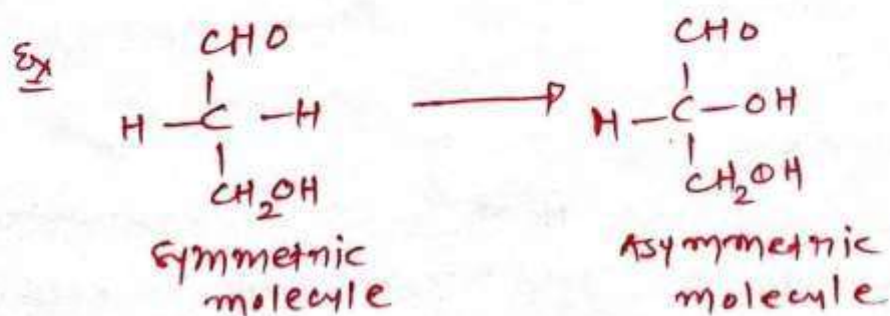 Ex
CHO
H - C - H
CH₂OH
Symmetric
molecule
CHO
H - C - OH
CH₂OH
Asymmetric
molecule